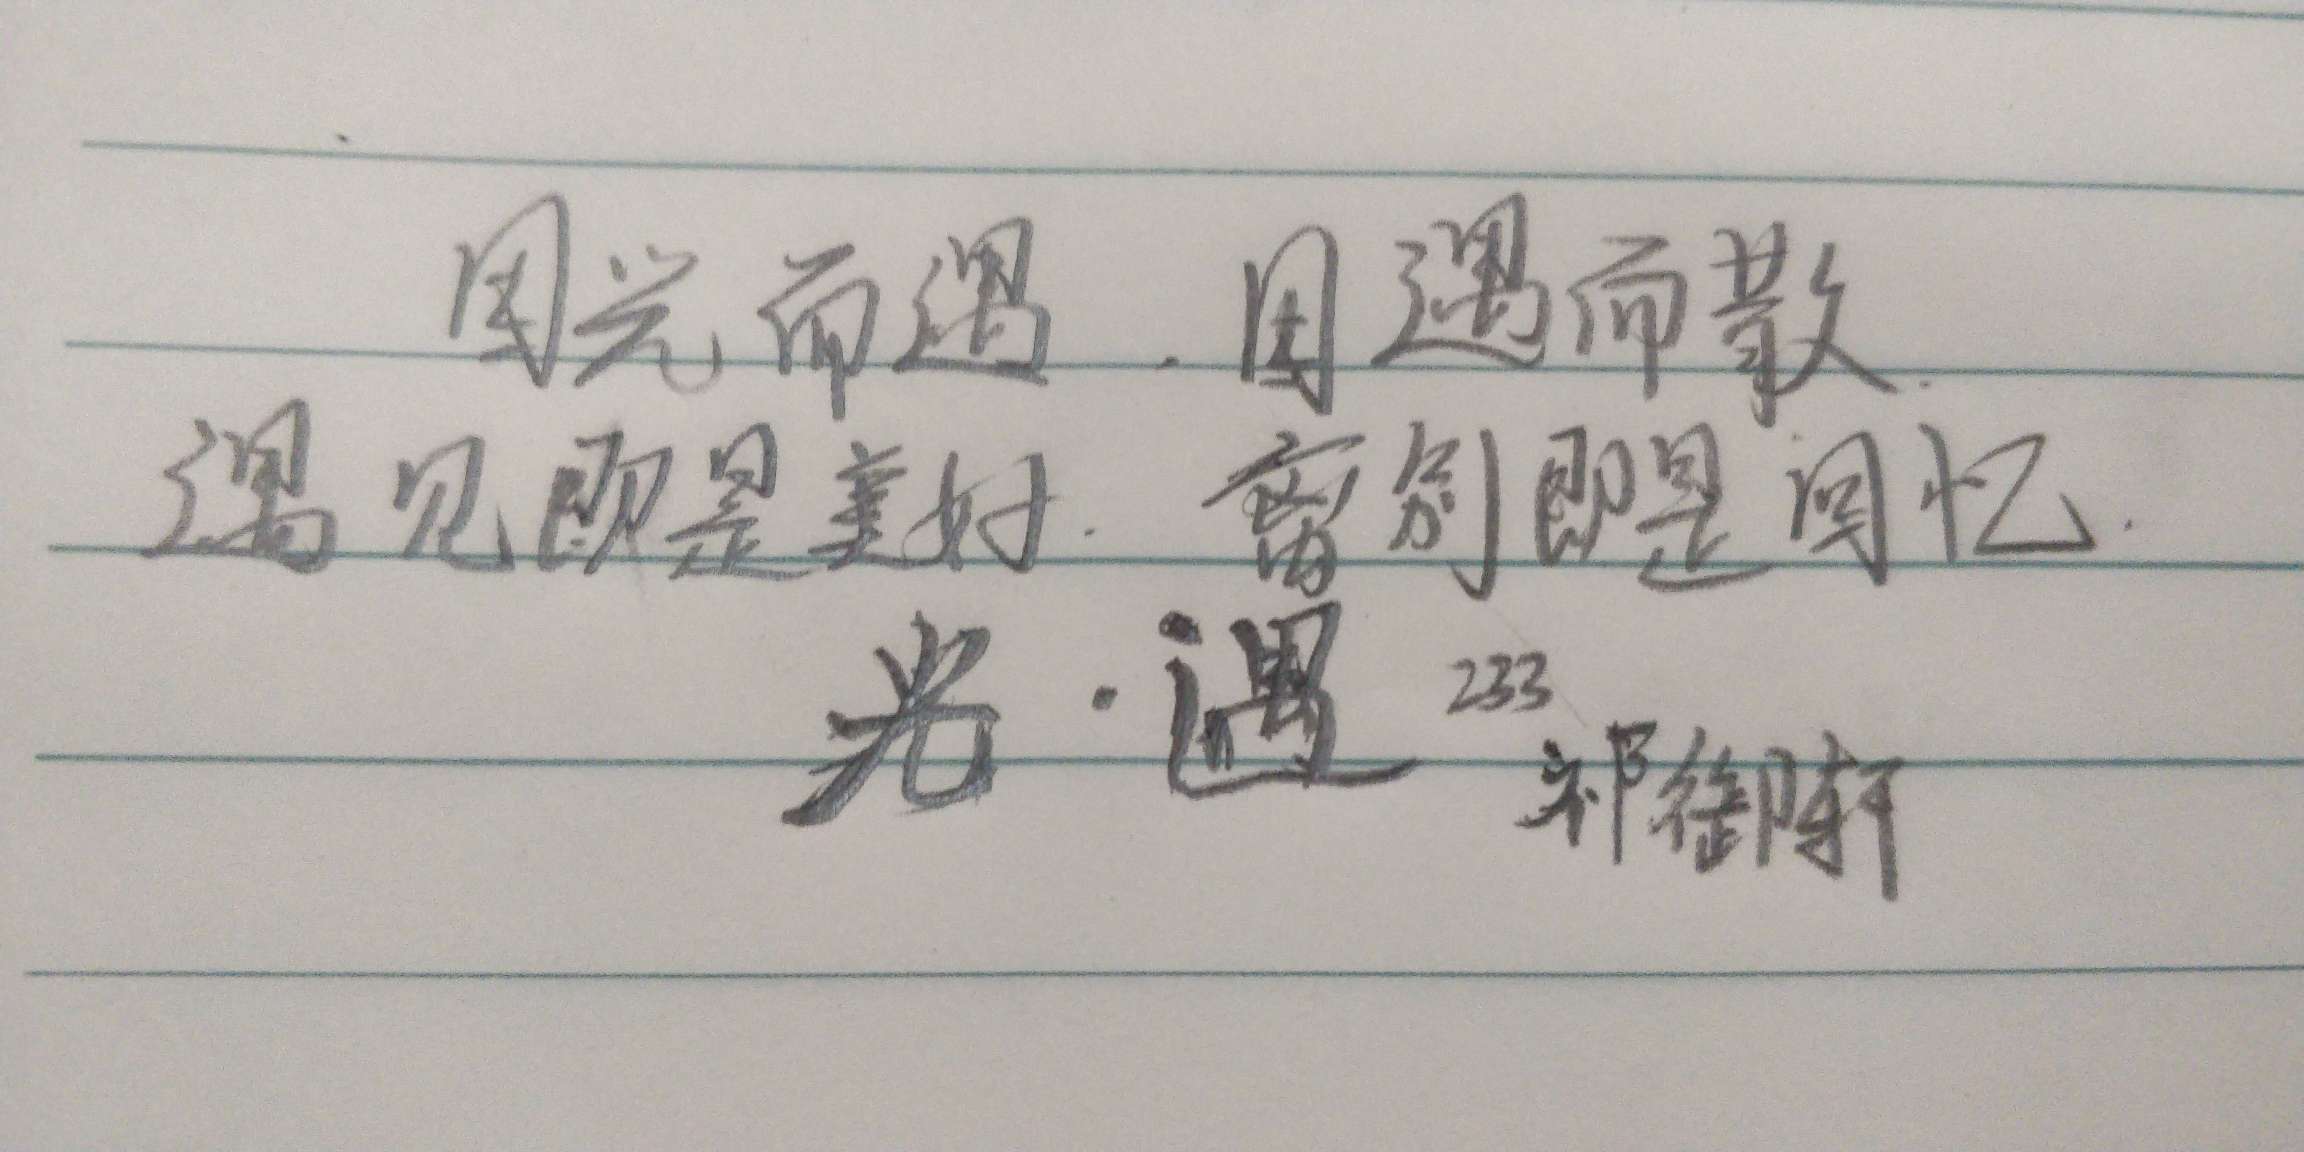 因光而遇.因遇而散.
遇见即是美好.离别即是回忆.
光·遇 233
祁御轩